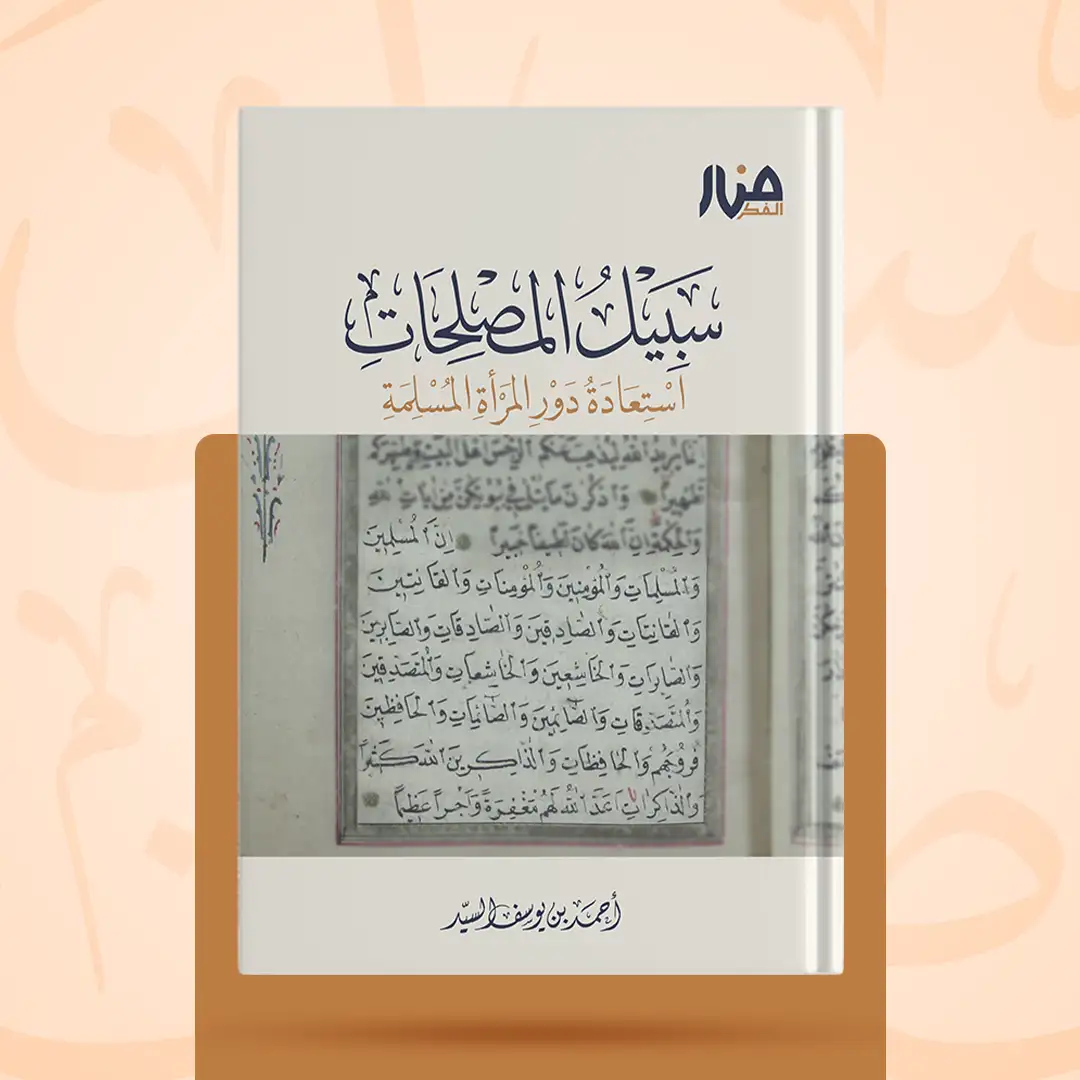 منار
الفكر
سَبِيْلُ المُصْلِحَاتِ
اسْتِعَادَةُ دَوْرِ المَرْأةِ المُسْلِمَةِ
يريد الله ليذهب عنكم الرجس اهل البيت ويطهركم
تطهيرا واذكرن ما يتلى في بيوتكن من ايات الله
والحكمة ان الله كان لطيفا خبيرا اِنَّ الْمُسْلِمِينَ
وَالْمُسْلِمَاتِ وَالْمُؤْمِنِينَ وَالْمُؤْمِنَاتِ وَالْقَانِتِينَ
وَالْقَانِتَاتِ وَالصَّادِقِينَ وَالصَّادِقَاتِ وَالصَّابِرِينَ
وَالصَّابِرَاتِ وَالْخَاشِعِينَ وَالْخَاشِعَاتِ وَالْمُتَصَدِّقِينَ
وَالْمُتَصَدِّقَاتِ وَالصَّائِمِينَ وَالصَّائِمَاتِ وَالْحَافِظِينَ
فُرُوجَهُمْ وَالْحَافِظَاتِ وَالذَّاكِرِينَ اللّٰهَ كَثِيراً
وَالذَّاكِرَاتِ اَعَدَّ اللّٰهُ لَهُمْ مَغْفِرَةً وَاَجْراً عَظِيماً
أحمد بن يوسف السيّد